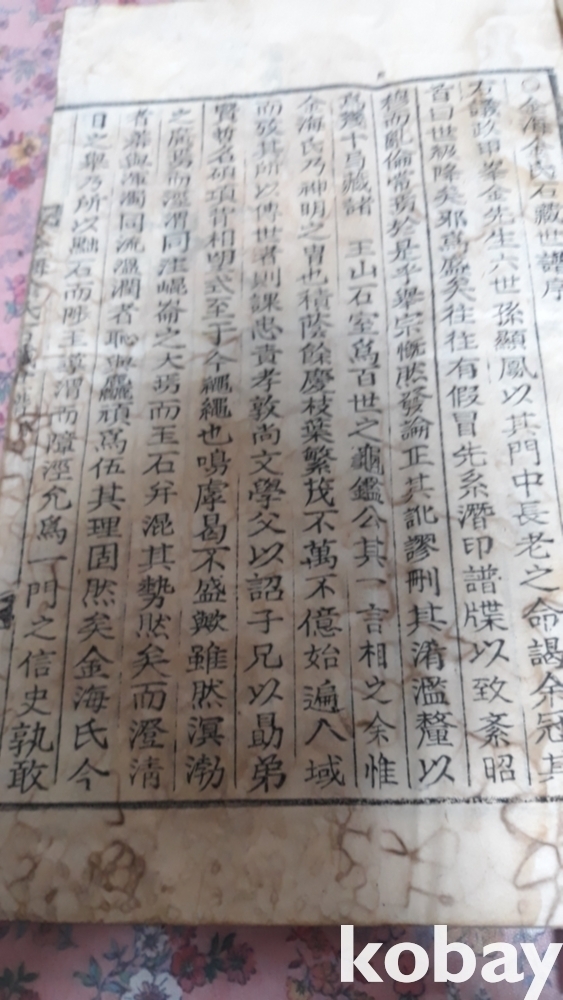 ○金海金氏石藏世譜序
右議政甲峯金先生六世孫顯鳳以其門中長老之命謁余冠其
首曰世級降矣邪爲盛矣往往有假冒先系潛印譜牒以致紊昭
穆而亂倫常我於是乎與宗慨然發論正其訛謬刪其淆濫釐以
爲幾十局藏諸 王山石室爲百世之龜鑑公其一言相之余惟
金海氏乃神明之冑也積蔭餘慶枝葉繁茂不萬不億始遍八域
而攷其所以傳世者則課忠責孝敦尙文學父以詔子兄以勗弟
賢哲名碩項背相望式至于今繩繩也嗚虖曷不盛歟雖然溟渤
之廣焉而涇渭同注崐崙之大焉而玉石幷混其勢然矣而澄淸
者羞與渾濁同流溫潤者恥與麤頑爲伍其理固然矣金海氏今
日之擧乃所以黜石而彫玉導渭而障涇允爲一門之信史孰敢
kobay